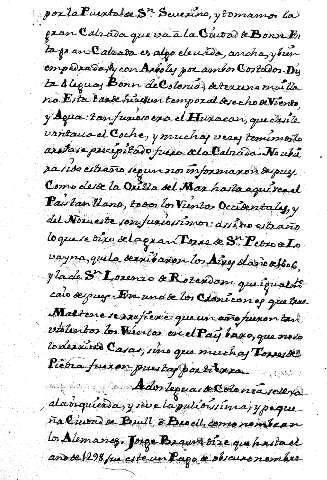 por la Puerta de Sn. Severino, y tomamos la
gran Calzada que va à la Ciudad de Bonn. Es
ta gran Calzada es algo elevada, ancha, y bien
empedrada, y con Arboles por ambos Costados. Dis
ta Leguas Bonn de Colonia, de terreno mui lla
no. Esta tarde hizo un temporal desecho de Viento,
y Agua tan furioso era el Huracan, que casi le
vantava el Coche, y muchas veces temimos lo
arrojase precipitado fuera de la Calzada. No
sido estraño segun nos informaron despues.
Como desde la Orilla del Mar hasta aqui es el
Pais tan llano, todos los Vientos Occidentales, y
del Norueste son furiosissimos: assi no es estraño
lo que se dize de la gran Torre de Sn. Pedro de Lo
vayna, que la derribaron los Ayres el año de 1606,
y la de Sn. Lorenzo de Roterdam que igualmte.
caiò despues. En uno de los Cronicones que trae
se refiere que un año fueron tan
violentos los Vientos en el Pais baxo, que no so
lo derribó Casas, sino que muchas Torres de
Piedra fueron puestas por tierra.
A dos leguas de Colonia se dexa
a la izquierda, y se ve la pulidissima, y peque
ña Ciudad de Brull, ò Brüell, como nombran
los Alemanes. Jorge dize que hasta el
año de 1298, fue este un Pago de obscuro nombre